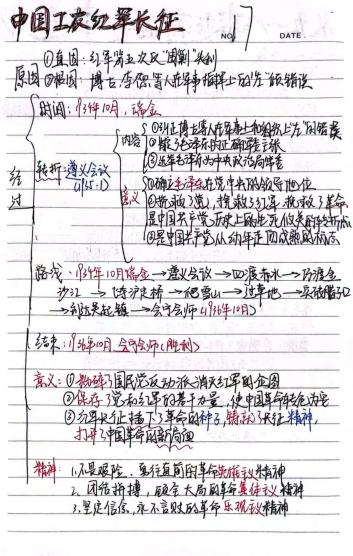 中国工农红军长征
NO. 17 DATE.
原因 ①直因:红军第五次反“围剿”失利
②根因:博古、李德等人在军事指挥上的“左”倾错误
经过 时间:1934年10月,瑞金
转折:遵义会议(1935.1)
内容 ①纠正博古等人在军事上和组织上“左”的错误
②肯定了毛泽东的正确军事主张
③选举毛泽东为中央政治局常委
意义 ①确立毛泽东在党中央的领导地位
②挽救了党,挽救了红军,挽救了革命,
是中国共产党历史上的生死攸关的转折点
③是中国共产党从幼年走向成熟的标志
路线:1934年10月瑞金→遵义会议→四渡赤水→巧渡金
沙江→飞夺泸定桥→爬雪山→过草地→突破腊子口
→到达吴起镇→会宁会师(1936年10月)
结束:1936年10月会宁会师(胜利)
意义:①粉碎了国民党反动派消灭红军的企图
②保存了党和红军的基干力量,使中国革命转危为安
③红军长征播下了革命的种子,铸就了长征精神,
打开了中国革命的新局面
精神:1.不畏艰险、勇往直前的革命英雄主义精神
2.团结拼搏,顾全大局的革命集体主义精神
3.坚定信念,永不言败的革命乐观主义精神